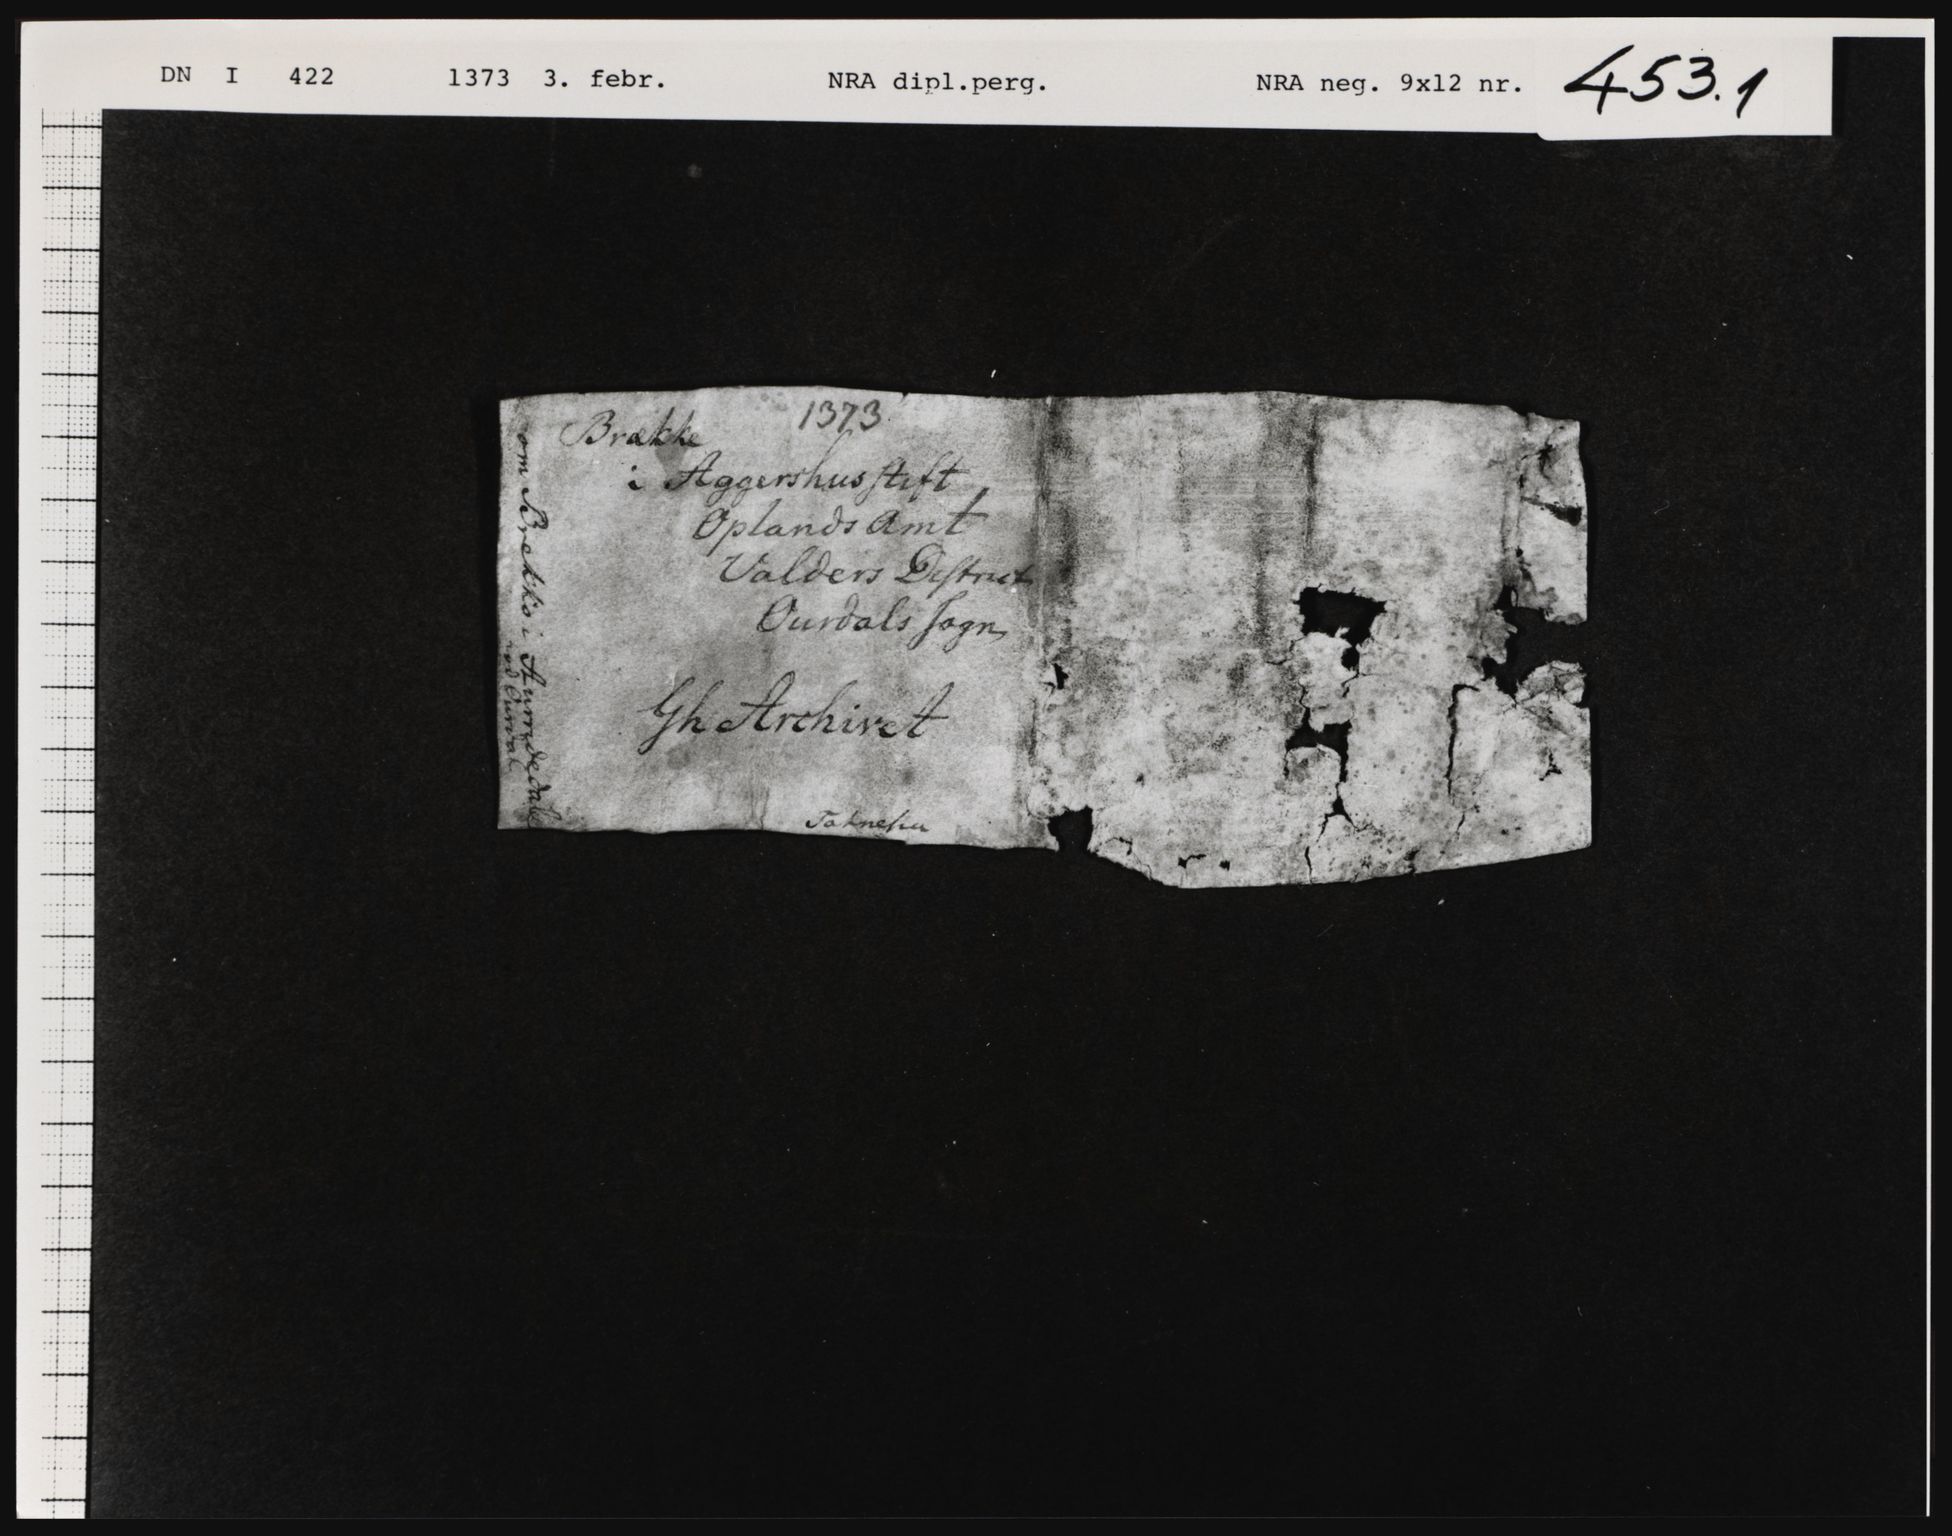 DN I 422 1373 3. febr. NRA dipl.perg. NRA neg. 9x12 nr. 453.1
1373
Brække
i Aggershus stift
Oplands Amt
Valders District
Ourdals sogn
Gh Archivet
om Brekke i Aurrededall
Ourdal